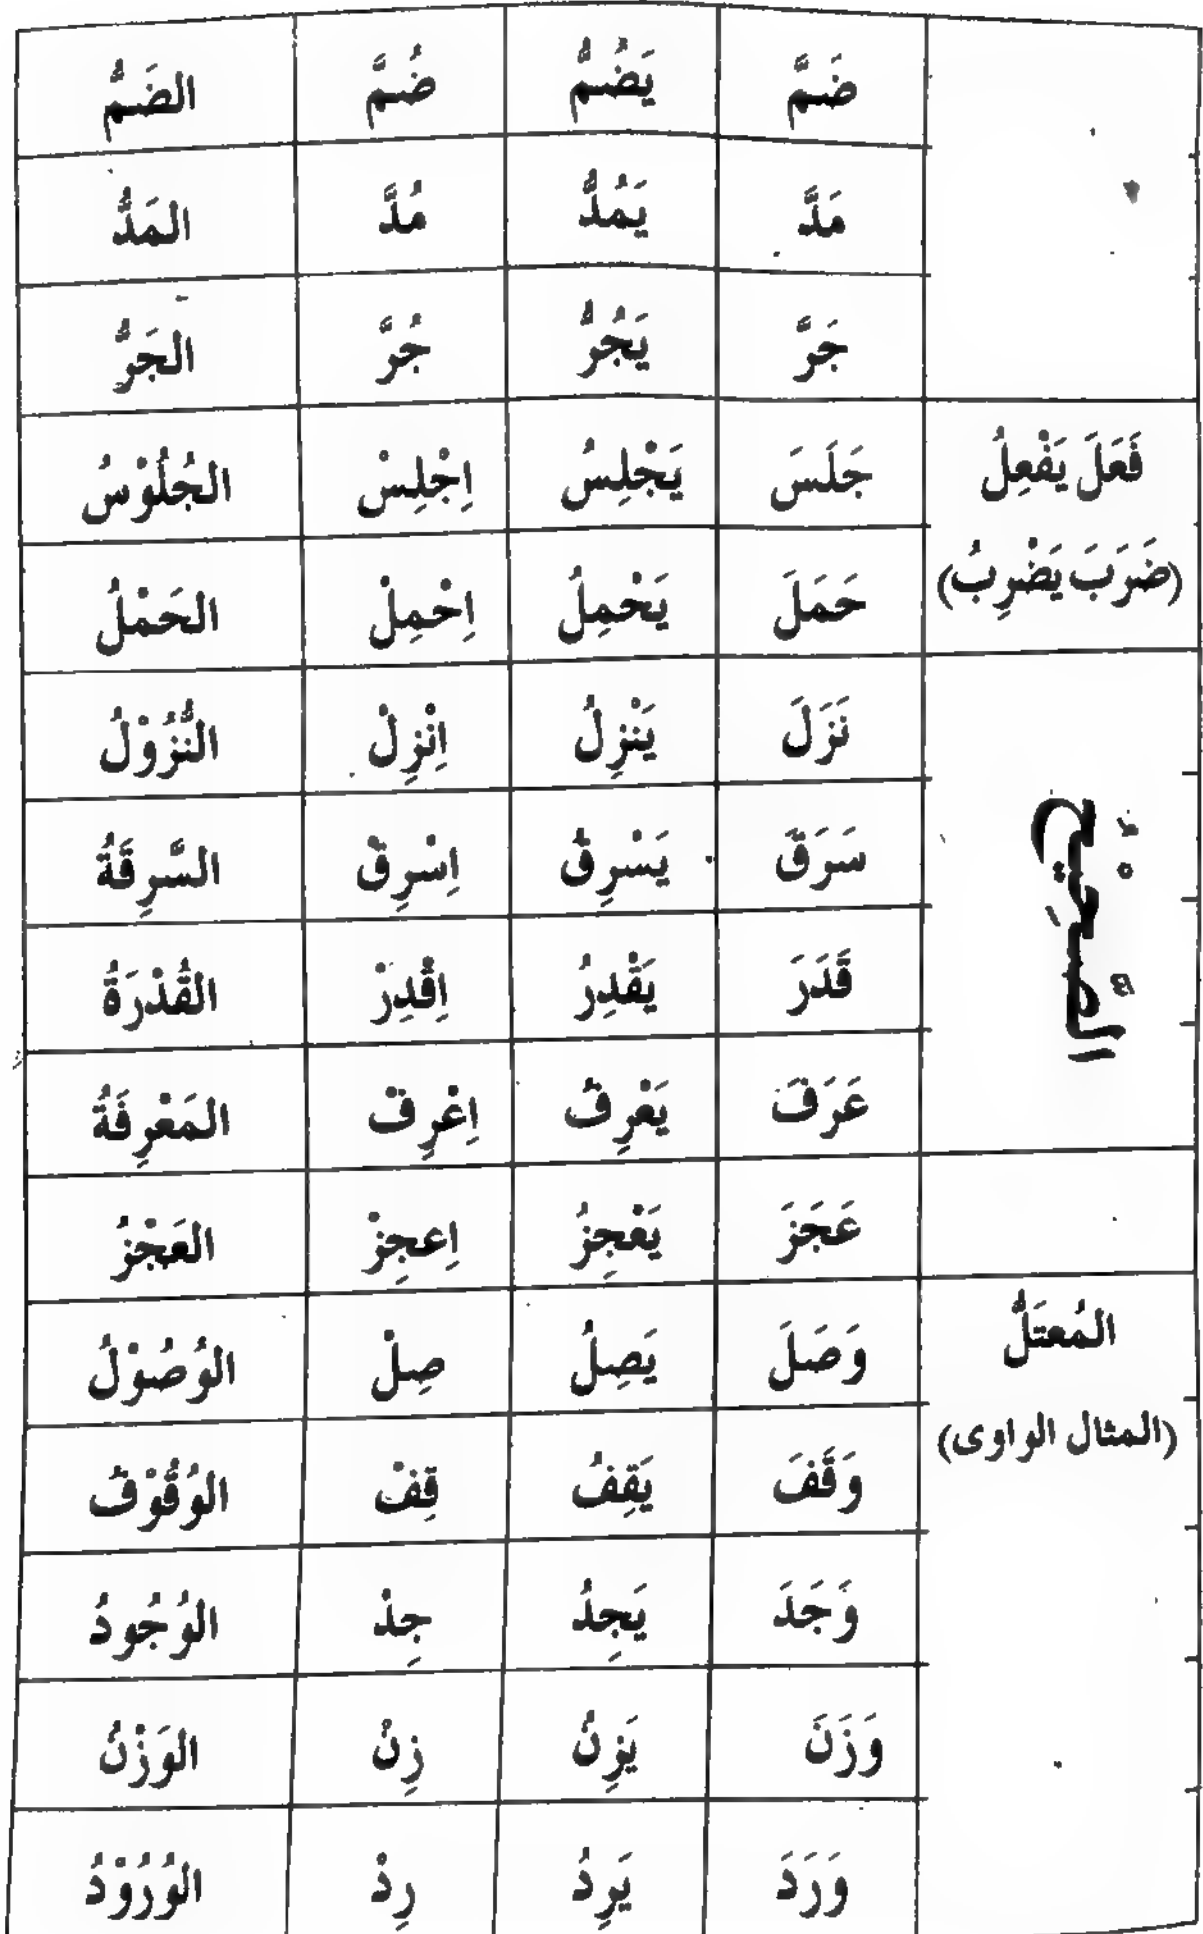 ضَمَّ يَضُمُّ ضُمَّ الضَمُّ
مَدَّ يَمُدُّ مُدَّ المَدُّ
جَرَّ يَجُرُّ جُرَّ الجَرُّ
فَعَلَ يَفْعِلُ جَلَسَ يَجْلِسُ اِجْلِسْ الجُلُوْسُ
(ضَرَبَ يَضْرِبُ) حَمَلَ يَحْمِلُ اِحْمِلْ الحَمْلُ
نَزَلَ يَنْزِلُ اِنْزِلْ النُّزُوْلُ
الصَّحِيْحُ سَرَقَ يَسْرِقُ اِسْرِقْ السَّرِقَةُ
قَدَرَ يَقْدِرُ اِقْدِرْ القُدْرَةُ
عَرَفَ يَعْرِفُ اِعْرِفْ المَعْرِفَةُ
عَجَزَ يَعْجِزُ اِعجِزْ العَجْزُ
المُعتَلُّ وَصَلَ يَصِلُ صِلْ الوُصُوْلُ
(المثال الواوى) وَقَفَ يَقِفُ قِفْ الوُقُوْفُ
وَجَدَ يَجِدُ جِدْ الوُجُودُ
وَزَنَ يَزِنُ زِنْ الوَزْنُ
وَرَدَ يَرِدُ رِدْ الوُرُوْدُ